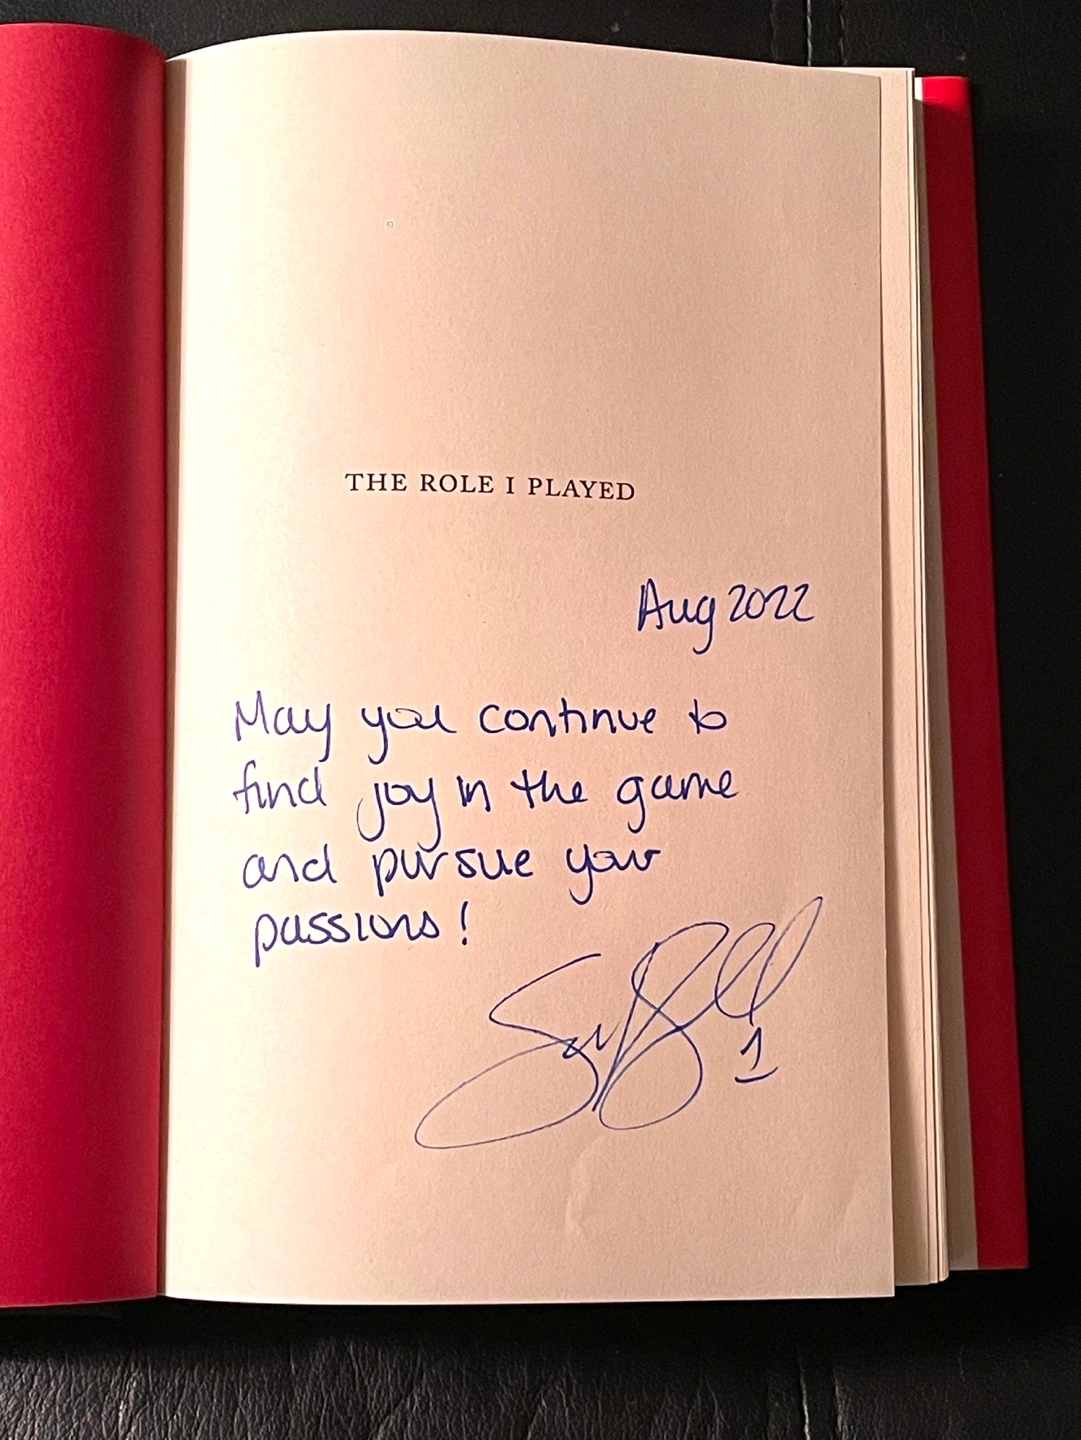 THE ROLE I PLAYED
Aug 2022
May you continue to
find joy in the game
and pursue your
passions!
1